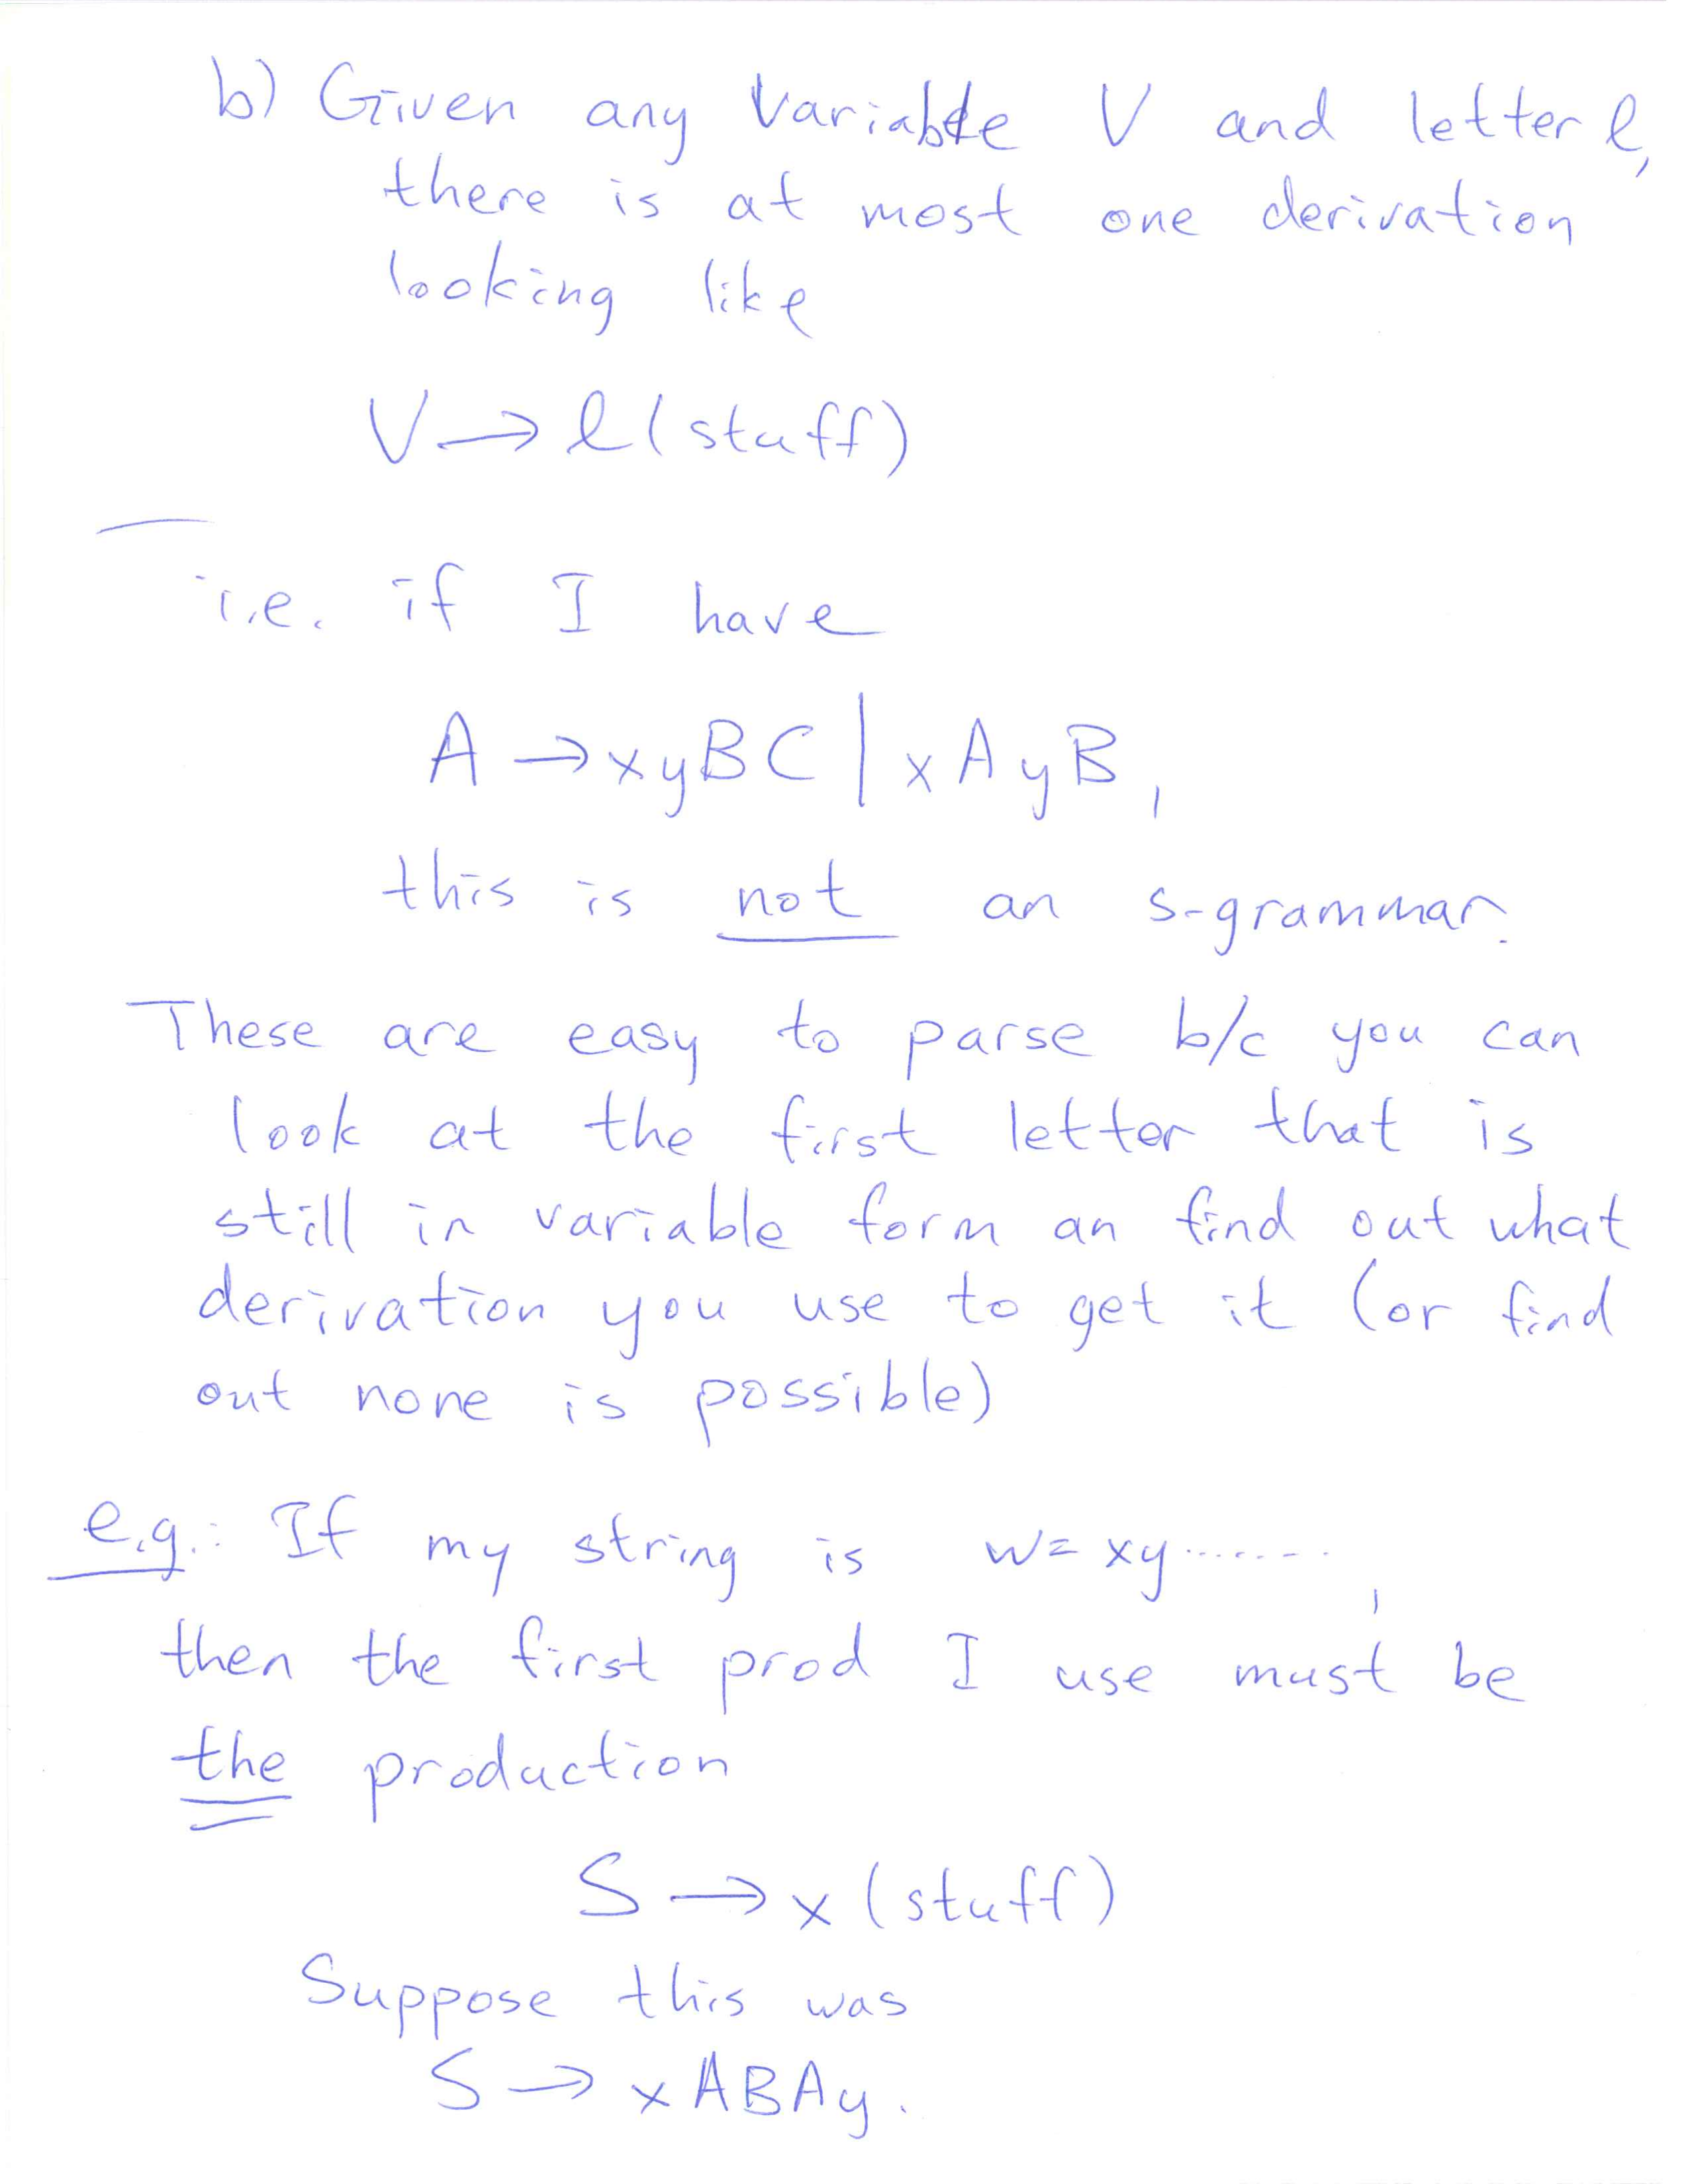 b) Given any Variable V and letter ℓ,
there is at most one derivation
looking like
V → ℓ(stuff)
i.e. if I have
A → xyBC | xAyB,
this is not an s-grammar.
These are easy to parse b/c you can
look at the first letter that is
still in variable form an find out what
derivation you use to get it (or find
out none is possible)
e.g.: If my string is w = xy.......,
then the first prod I use must be
the production
S → x(stuff)
Suppose this was
S → xABAy.